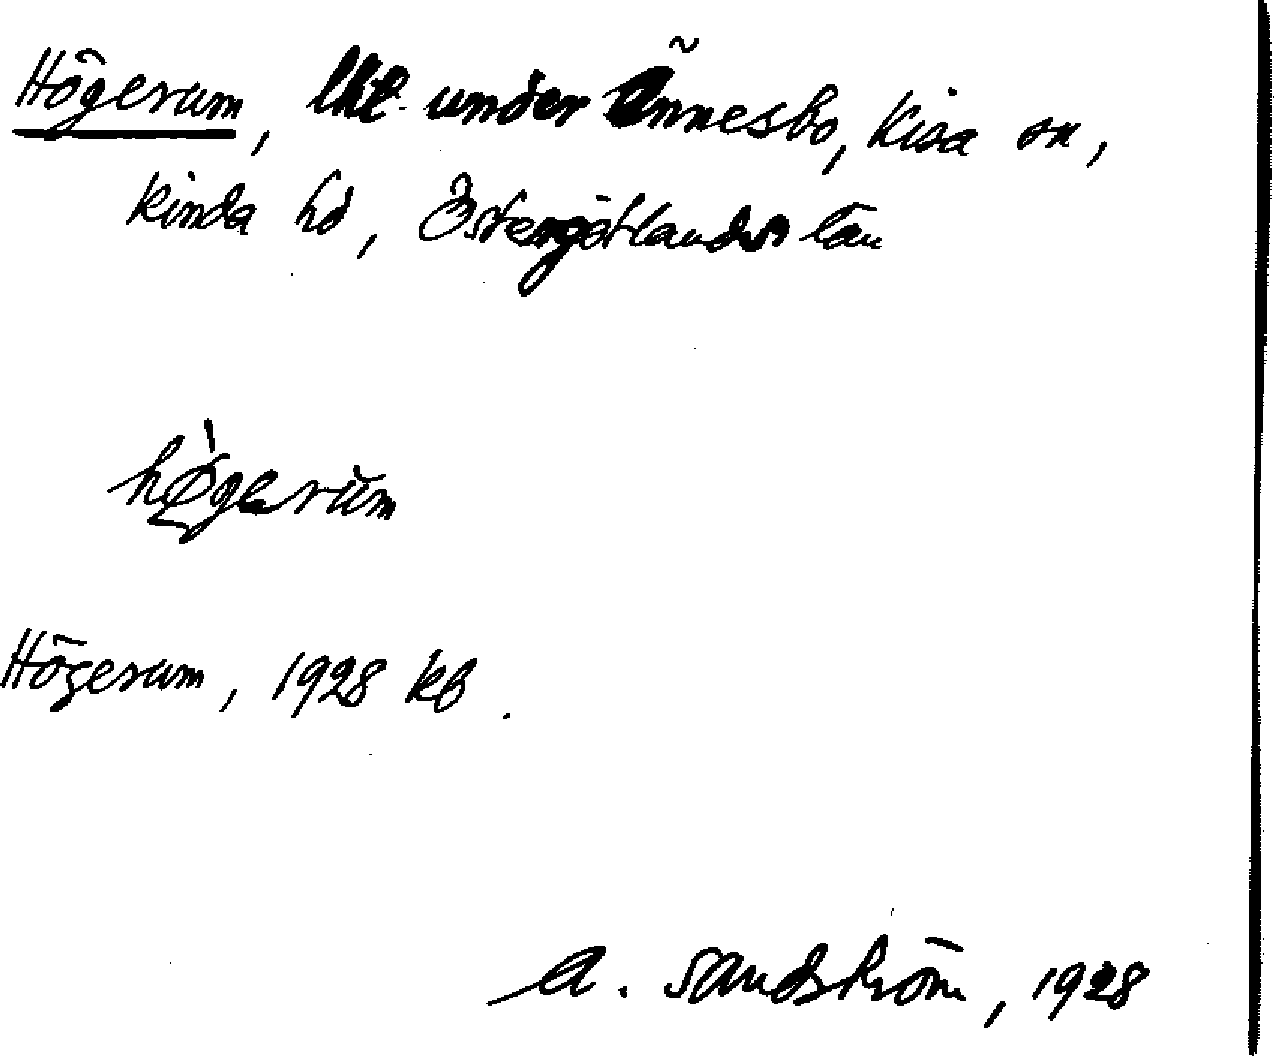 Högerum, lht under Ännesbo, Kisa sn,
Kinda hd, Östergötlands län
hø̀gerŭm
Högerum, 1928 kb.
A. Sandström, 1928